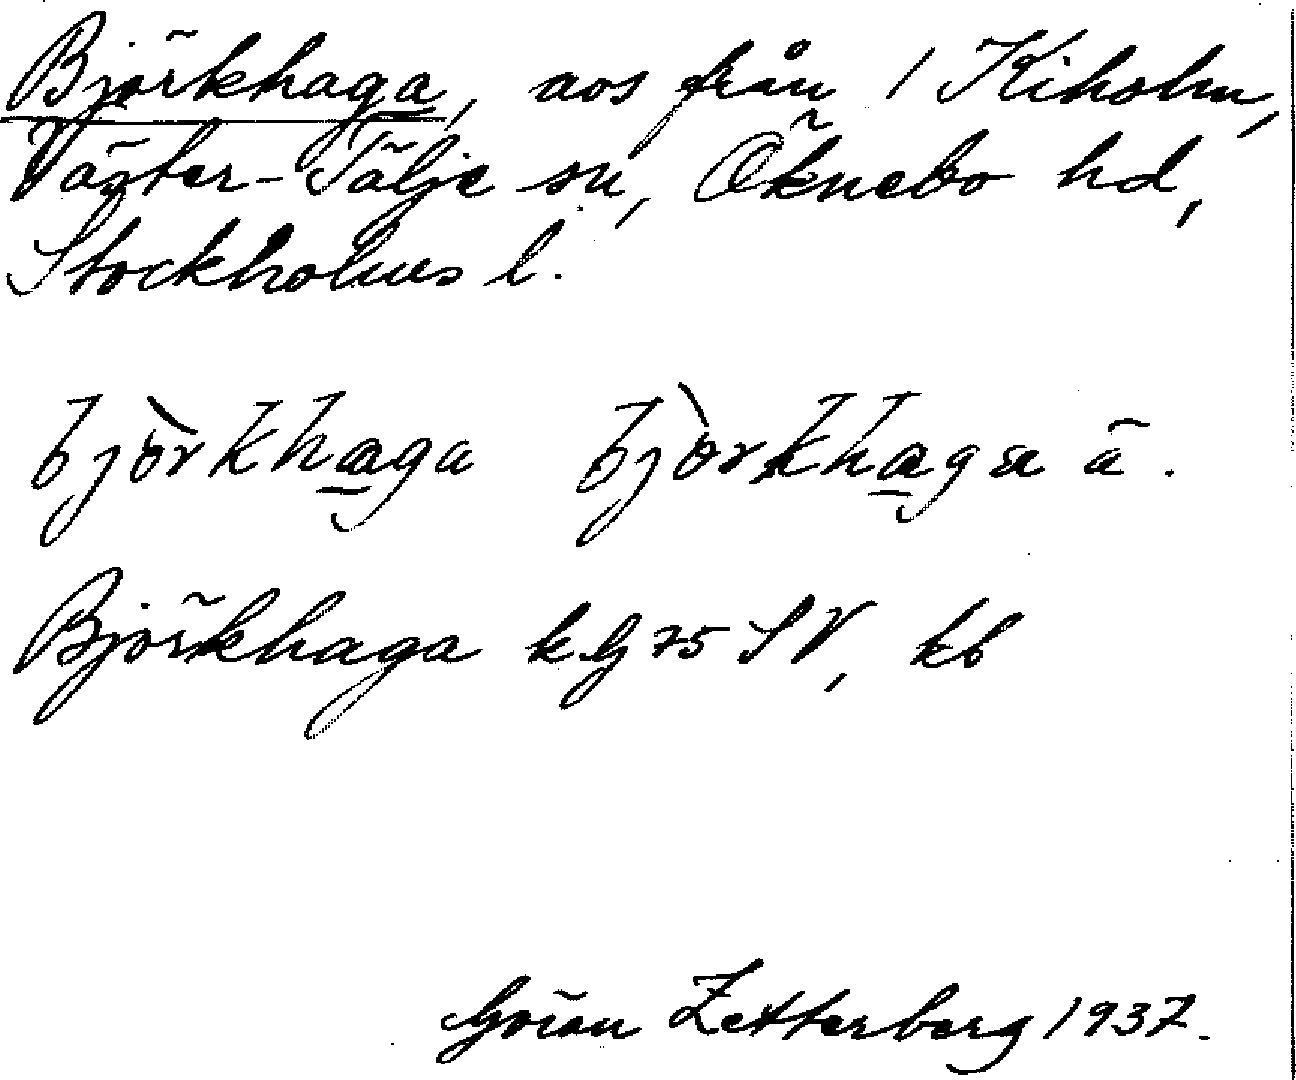 Björkhaga, aos från 1 Kiholm,
Väster-Tälje sn, Öknebo hd,
Stockholms l.
bjòrkhaga bjòrkhagæ ä.
Björkhaga k.G 75 SV, kb
Göran Zetterberg 1937.